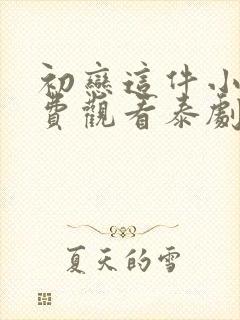 初戀這件小
費觀看泰劇
夏天的雪